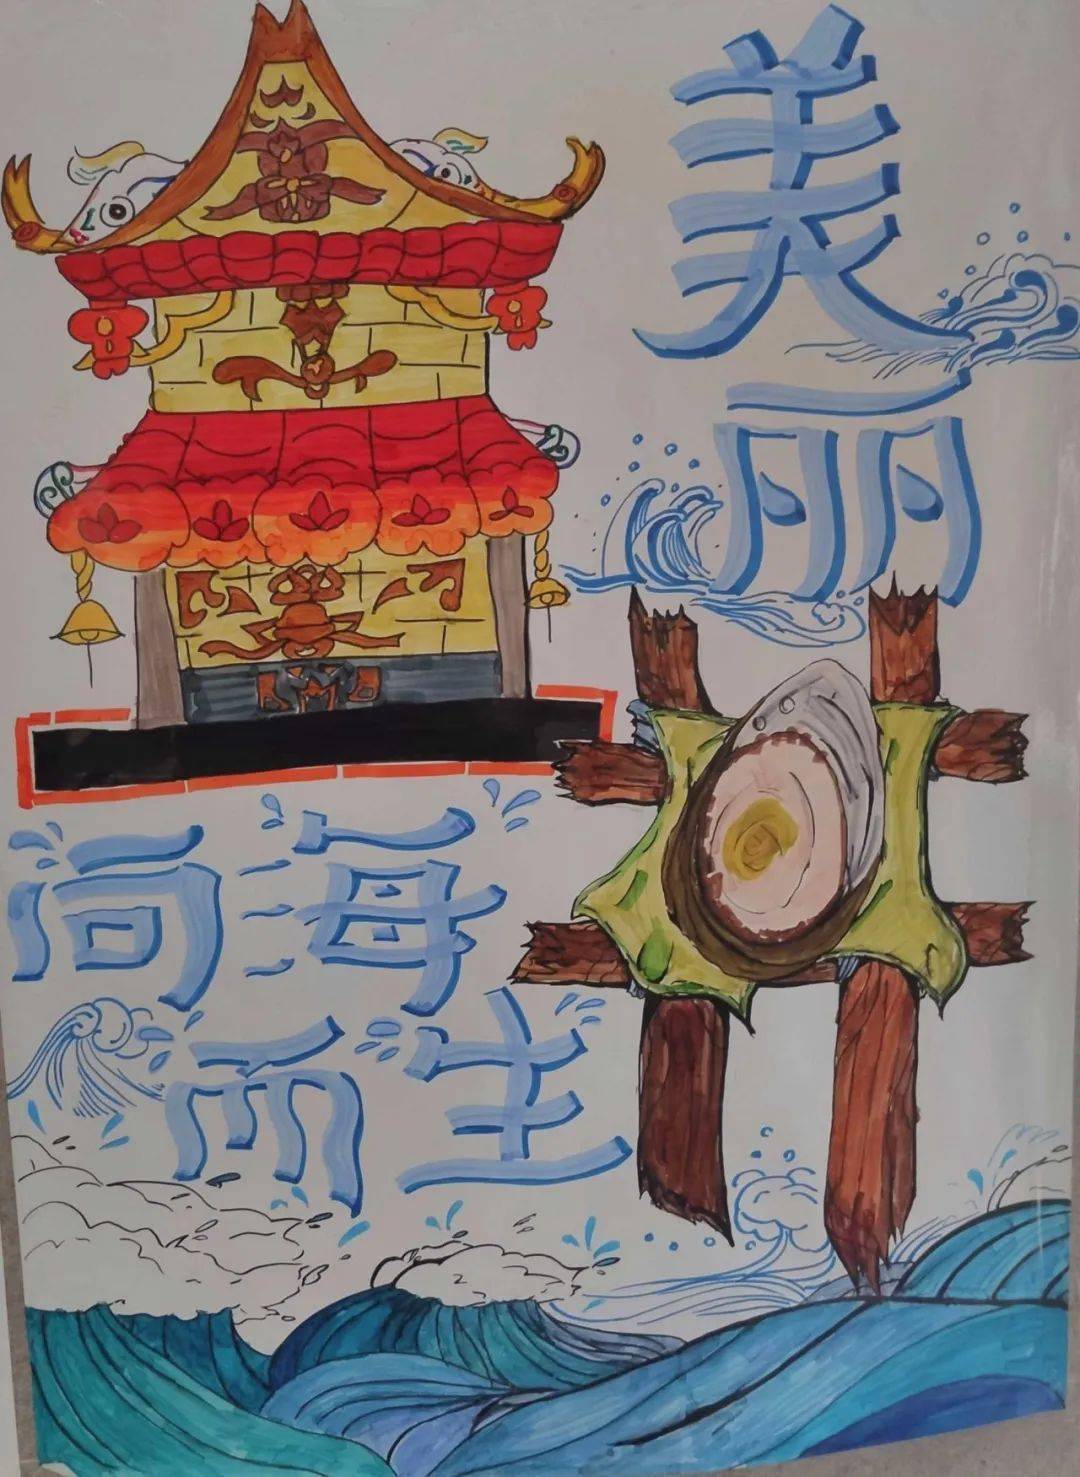 美
丽
向海
而生